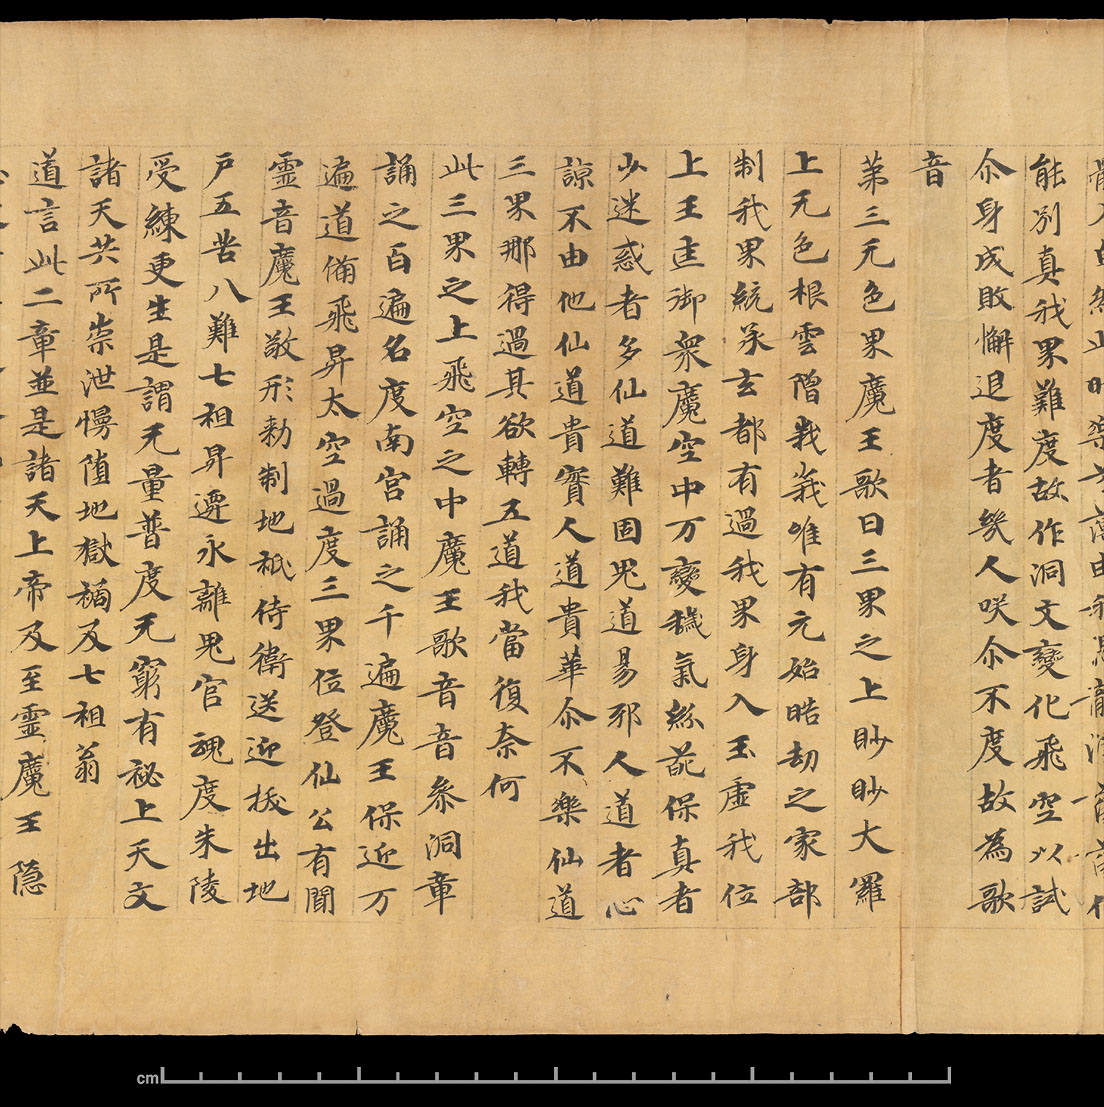 能別真我界難度故作洞文變化飛空以試
尒身成敗懈退度者幾人咲尒不度故為歌
音
苐三无色界魔王歌曰三界之上眇眇大羅
上无色根雲僧峩峩唯有元始晧劫之家部
制我界統承玄都有過我界身入玉虛我位
上王匡御衆魔空中万變穢氣紛葩保真者
少迷惑者多仙道難固鬼道易邪人道者心
諒不由他仙道貴實人道貴華尒不樂仙道
三界那得過其欲轉五道我當復奈何
此三界之上飛空之中魔王歌音音參洞章
誦之百遍名度南宮誦之千遍魔王保近万
遍道俻飛昇太空過度三界位登仙公有聞
靈音魔王敬形勑制地祇侍衛送迎拔出地
戶五苦八難七祖昇遷永離鬼官魂度朱陵
受練更生是謂无量普度无窮有祕上天文
諸天共所崇泄慢墮地獄禍及七祖翁
道言此二章並是諸天上帝及至靈魔王隱
cm